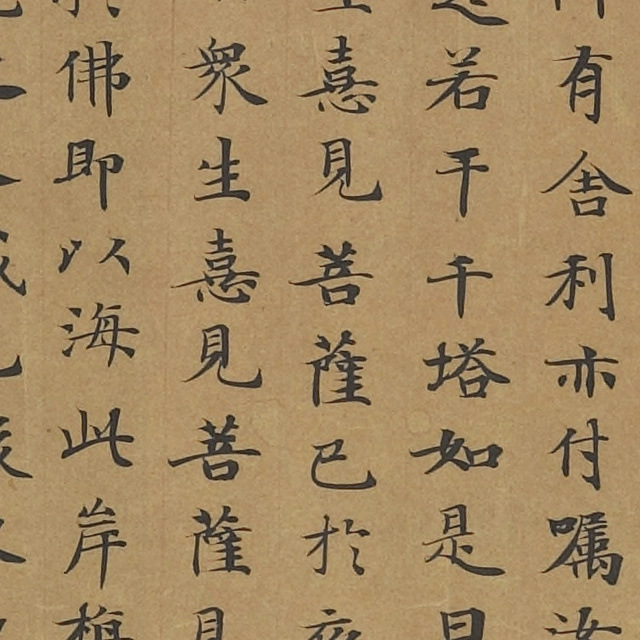 有舍利亦付嘱汝
若干千塔如是日
憙見菩薩已於夜
眾生憙見菩薩見
佛即以海此岸栴